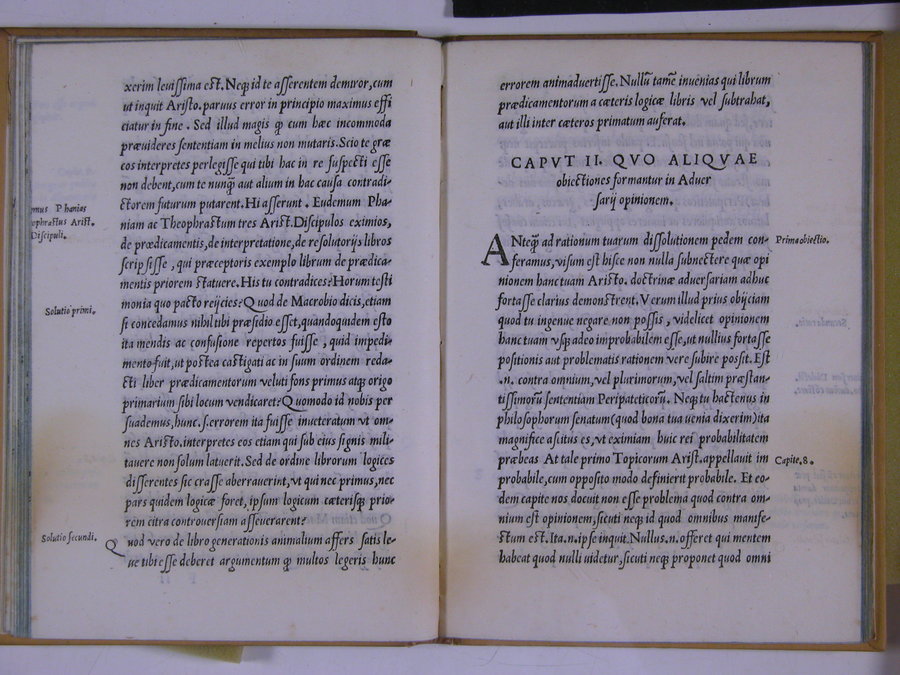 xerim leuissima est. Neq; id te asserentem demiror, cum
ut inquit Aristo. paruus error in principio maximus effi
ciatur in fine. Sed illud magis ꝙ cum hæc incommoda
præuideres sententiam in melius non mutaris. Scio te græ
cos interpretes perlegisse qui tibi hac in re suspecti esse
non debent, cum te nunꝙ aut alium in hac causa contradi-
ctorem futurum putarent. Hi asserunt. Eudemum Pha-
mus Phanias
niam ac Theophrastum tres Arist. Discipulos eximios,
ophrastus Arist.
de prædicamentis, de interpretatione, de resolutorijs libros
Discipuli.
scripsisse, qui præceptoris exemplo librum de prædica-
mentis priorem statuere. His tu contradices? Horum testi
monia quo pacto reijcies? Quod de Macrobio dicis, etiam
Solutio primi.
si concedamus nihil tibi præsidio esset, quandoquidem esto
ita mendis ac confusione repertos fuisse, quid impedi-
mento fuit, ut postea castigati ac in suum ordinem reda-
cti liber prædicamentorum veluti fons primus atq; origo
primarium sibi locum vendicaret? Quomodo id nobis per
suademus, hunc. s. errorem ita fuisse inueteratum vt om-
nes Aristo. interpretes eos etiam qui sub eius signis mili-
tauere non solum latuerit. Sed de ordine librorum logices
differentes sic crasse aberrauerint, vt qui nec primus, nec
pars quidem logicæ foret, ipsum logicum cæterisq; prio-
rem citra controuersiam asseuerarent?
Solutio secundi.
Quod vero de libro generationis animalium affers satis le-
ue tibi esse deberet argumentum ꝙ multos legeris hunc
errorem animaduertisse. Nullũ tamẽ inuenias qui librum
prædicamentorum a cæteris logicæ libris vel subtrahat,
aut illi inter cæteros primatum auferat.
CAPVT II. QVO ALIQVAE
obiectiones formantur in Aduer
sarij opinionem.
ANteꝙ ad rationum tuarum dissolutionem pedem con-
Prima obiectio.
feramus, visum est hisce non nulla subnectere quæ opi
nionem hanc tuam Aristo. doctrinæ aduersariam adhuc
fortasse clarius demonstrent. Verum illud prius obijciam
quod tu ingenue negare non possis, videlicet opinionem
hanc tuam vsq; adeo improbabilem esse, ut nullius fortasse
positionis aut problematis rationem vere subire possit. Est
.n. contra omnium, vel plurimorum, vel saltim præstan-
tissimorũ sententiam Peripateticorũ. Neq; tu hactenus in
philosophorum senatum (quod bona tua uenia dixerim) ita
magnifice ascitus es, vt eximiam huic rei probabilitatem
præbeas At tale primo Topicorum Arist. appellauit im
Capite. 8.
probabile, cum opposito modo definierit probabile. Et eo-
dem capite nos docuit non esse problema quod contra om-
nium est opinionem, sicuti neq; id quod omnibus manife-
ctum est. Ita. n. ipse inquit. Nullus. n. offeret qui mentem
habeat quod nulli uidetur, sicuti neq; proponet quod omni